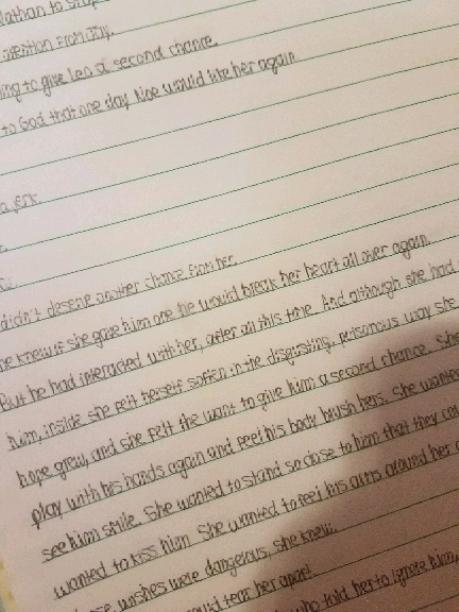 Nathan to stop
attention from Jay.
ing to give Leo a second chance.
to God that one day Noe would like her again
a jerk.
didn't deserve another chance from her.
he knew if she gave him one he would break her heart all over again.
But he had interacted with her, after all this time. And although she had
him, inside she felt herself soften in the disgusting, poisonous way she
hope grew, and she felt the want to give him a second chance. She
play with his hands again and feel his body brush hers. She wanted
see him smile. She wanted to stand so close to him that they
wanted to kiss him She wanted to feel his arms around her
wishes were dangerous, she knew.
would tear her apart
who told her to ignore him,